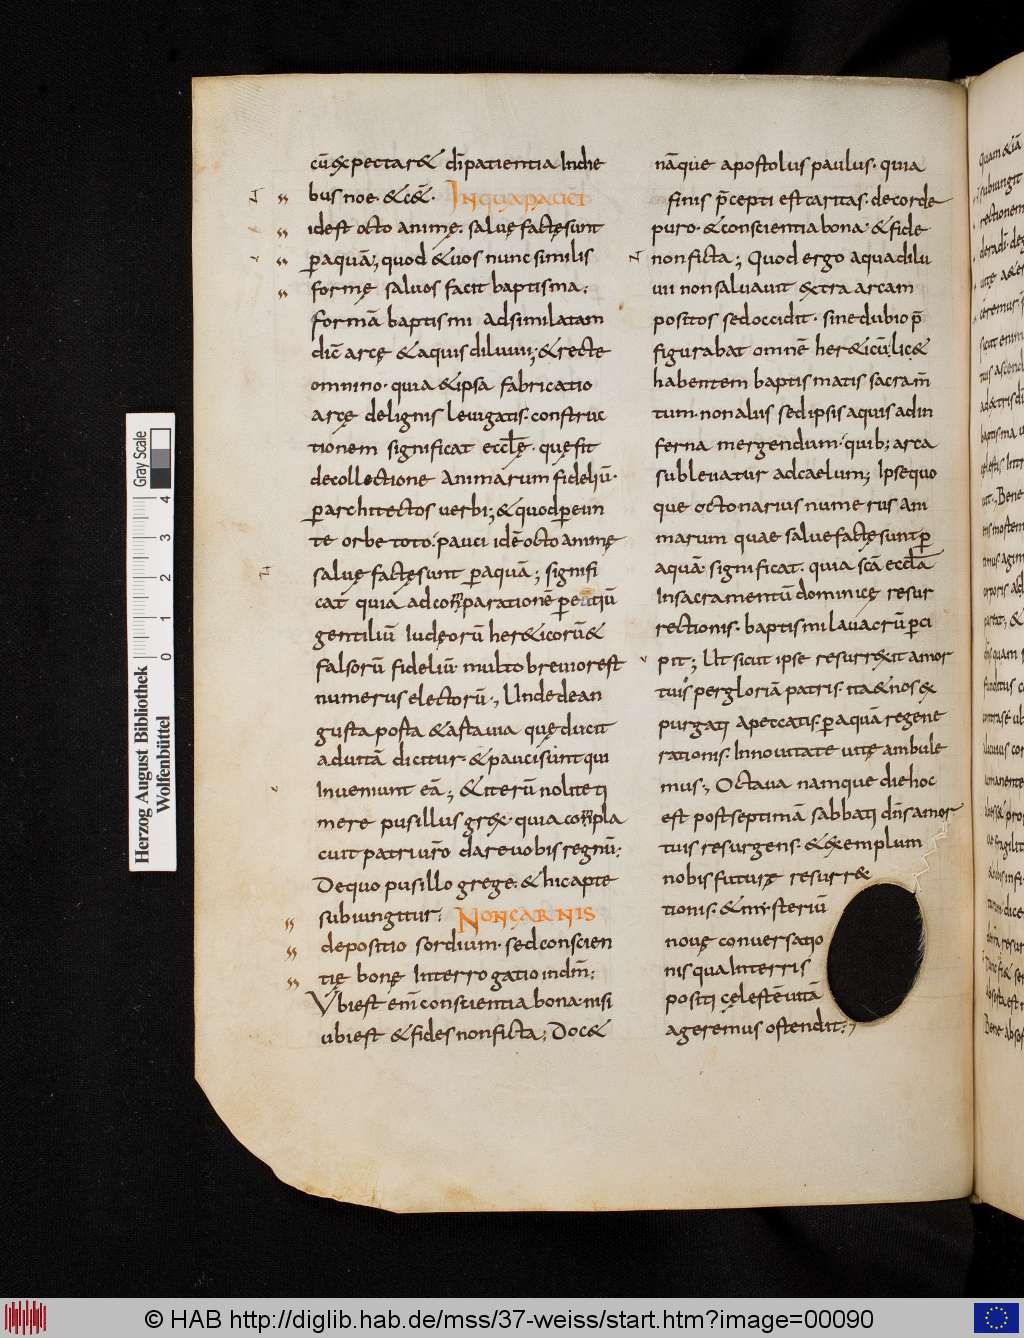 cū expectaret dī patientia In die
bus noe· & cet̄· In qua pauci
id est octo animę· saluę factę sunt
ꝑ aquā; quod & uos nunc similis
formę saluos facit baptisma;
formā baptismi adsimilatam
dic̄ arcę & aquis diluuii; & recte
omnino· quia & ipsa fabricatio
arcę de lignis leuigatis· construc
tionem significat eccl̄ę· quę fit
de collectione animarum fideliū·
ꝑ architectos uerbi; & quod ꝑeun
te orbe toto· pauci id ē octo animę
saluę factę sunt ꝑ aquā; signifi
cat quia ad comparationē ꝑeuntiū
gentiliū Iudęorū hereticorū &
falsorū fideliū· multo breuior est
numerus electorū·, Unde de an
gusta posta & asta uia quę ducit
ad uitā dicitur· & pauci sunt qui
Inueniunt eā; & iterū nolite ti
mere pusillus grex· quia compla
cuit patri ur̄o dare uobis regnū;
De quo pusillo grege· & hic apte
subiungitur: Non carnis
depositio sordium· sed conscien
tię bonę Interrogatio in dm̄;
Vbi est eni̅ conscientia bona· nisi
ubi est & fides non ficta; Docet
nāque apostolus paulus· quia
finis p̄cepti est caritas· de corde
puro· & conscientia bona· & fide
non ficta; Quod ergo aqua dilu
uii non saluauit extra arcam
positos sed occidit· sine dubio p̄
figurabat omnē hereticū; licet
habentem baptismatis sacram̄
tum· non aliis sed ipsis aquis ad in
ferna mergendum· quib; arca
subleuatur ad caelum; Ipse quo
que octonarius numerus ani
marum quae saluę factę sunt ꝑ
aquā· significat· quia sc̄a eccl̄a
In sacramentū dominicę resur
rectionis· baptismi lauacrū ꝑci
pit; Ut sicut ipse resurrexit a mor
tuis per gloriā patris· ita & nos ex
purgati a peccatis· ꝑ aquā regene
rationis· In nouitate uitę ambule
mus·, Octaua namque die hoc
est post septimā sabbati dn̄s a mor
tuis resurgens· & exemplum
nobis futurę resurrec
tionis· & mysteriū
nouę conuersatio
nis qua In terris
positi cęlestē uitā
ageremus ostendit;
Herzog August Bibliothek
Wolfenbüttel
0 1 2 3 4
Gray Scale
© HAB http://diglib.hab.de/mss/37-weiss/start.htm?image=00090